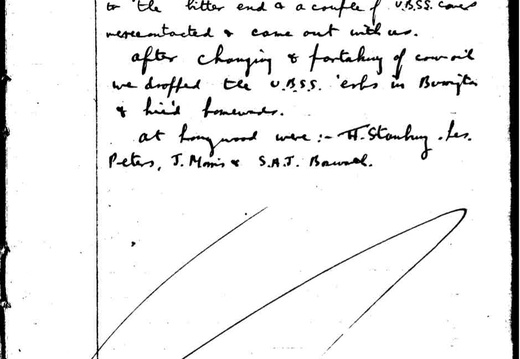 to the bitter end & a couple of U.B.S.S. cavers
were contacted & came out with us.
after changing & partaking of
we dropped the U.B.S.S. 'erbs in Burrington
& hied homewards.
at Longwood were :- H. Stanbury. Les.
Peters, J. Morris & S.A.J.